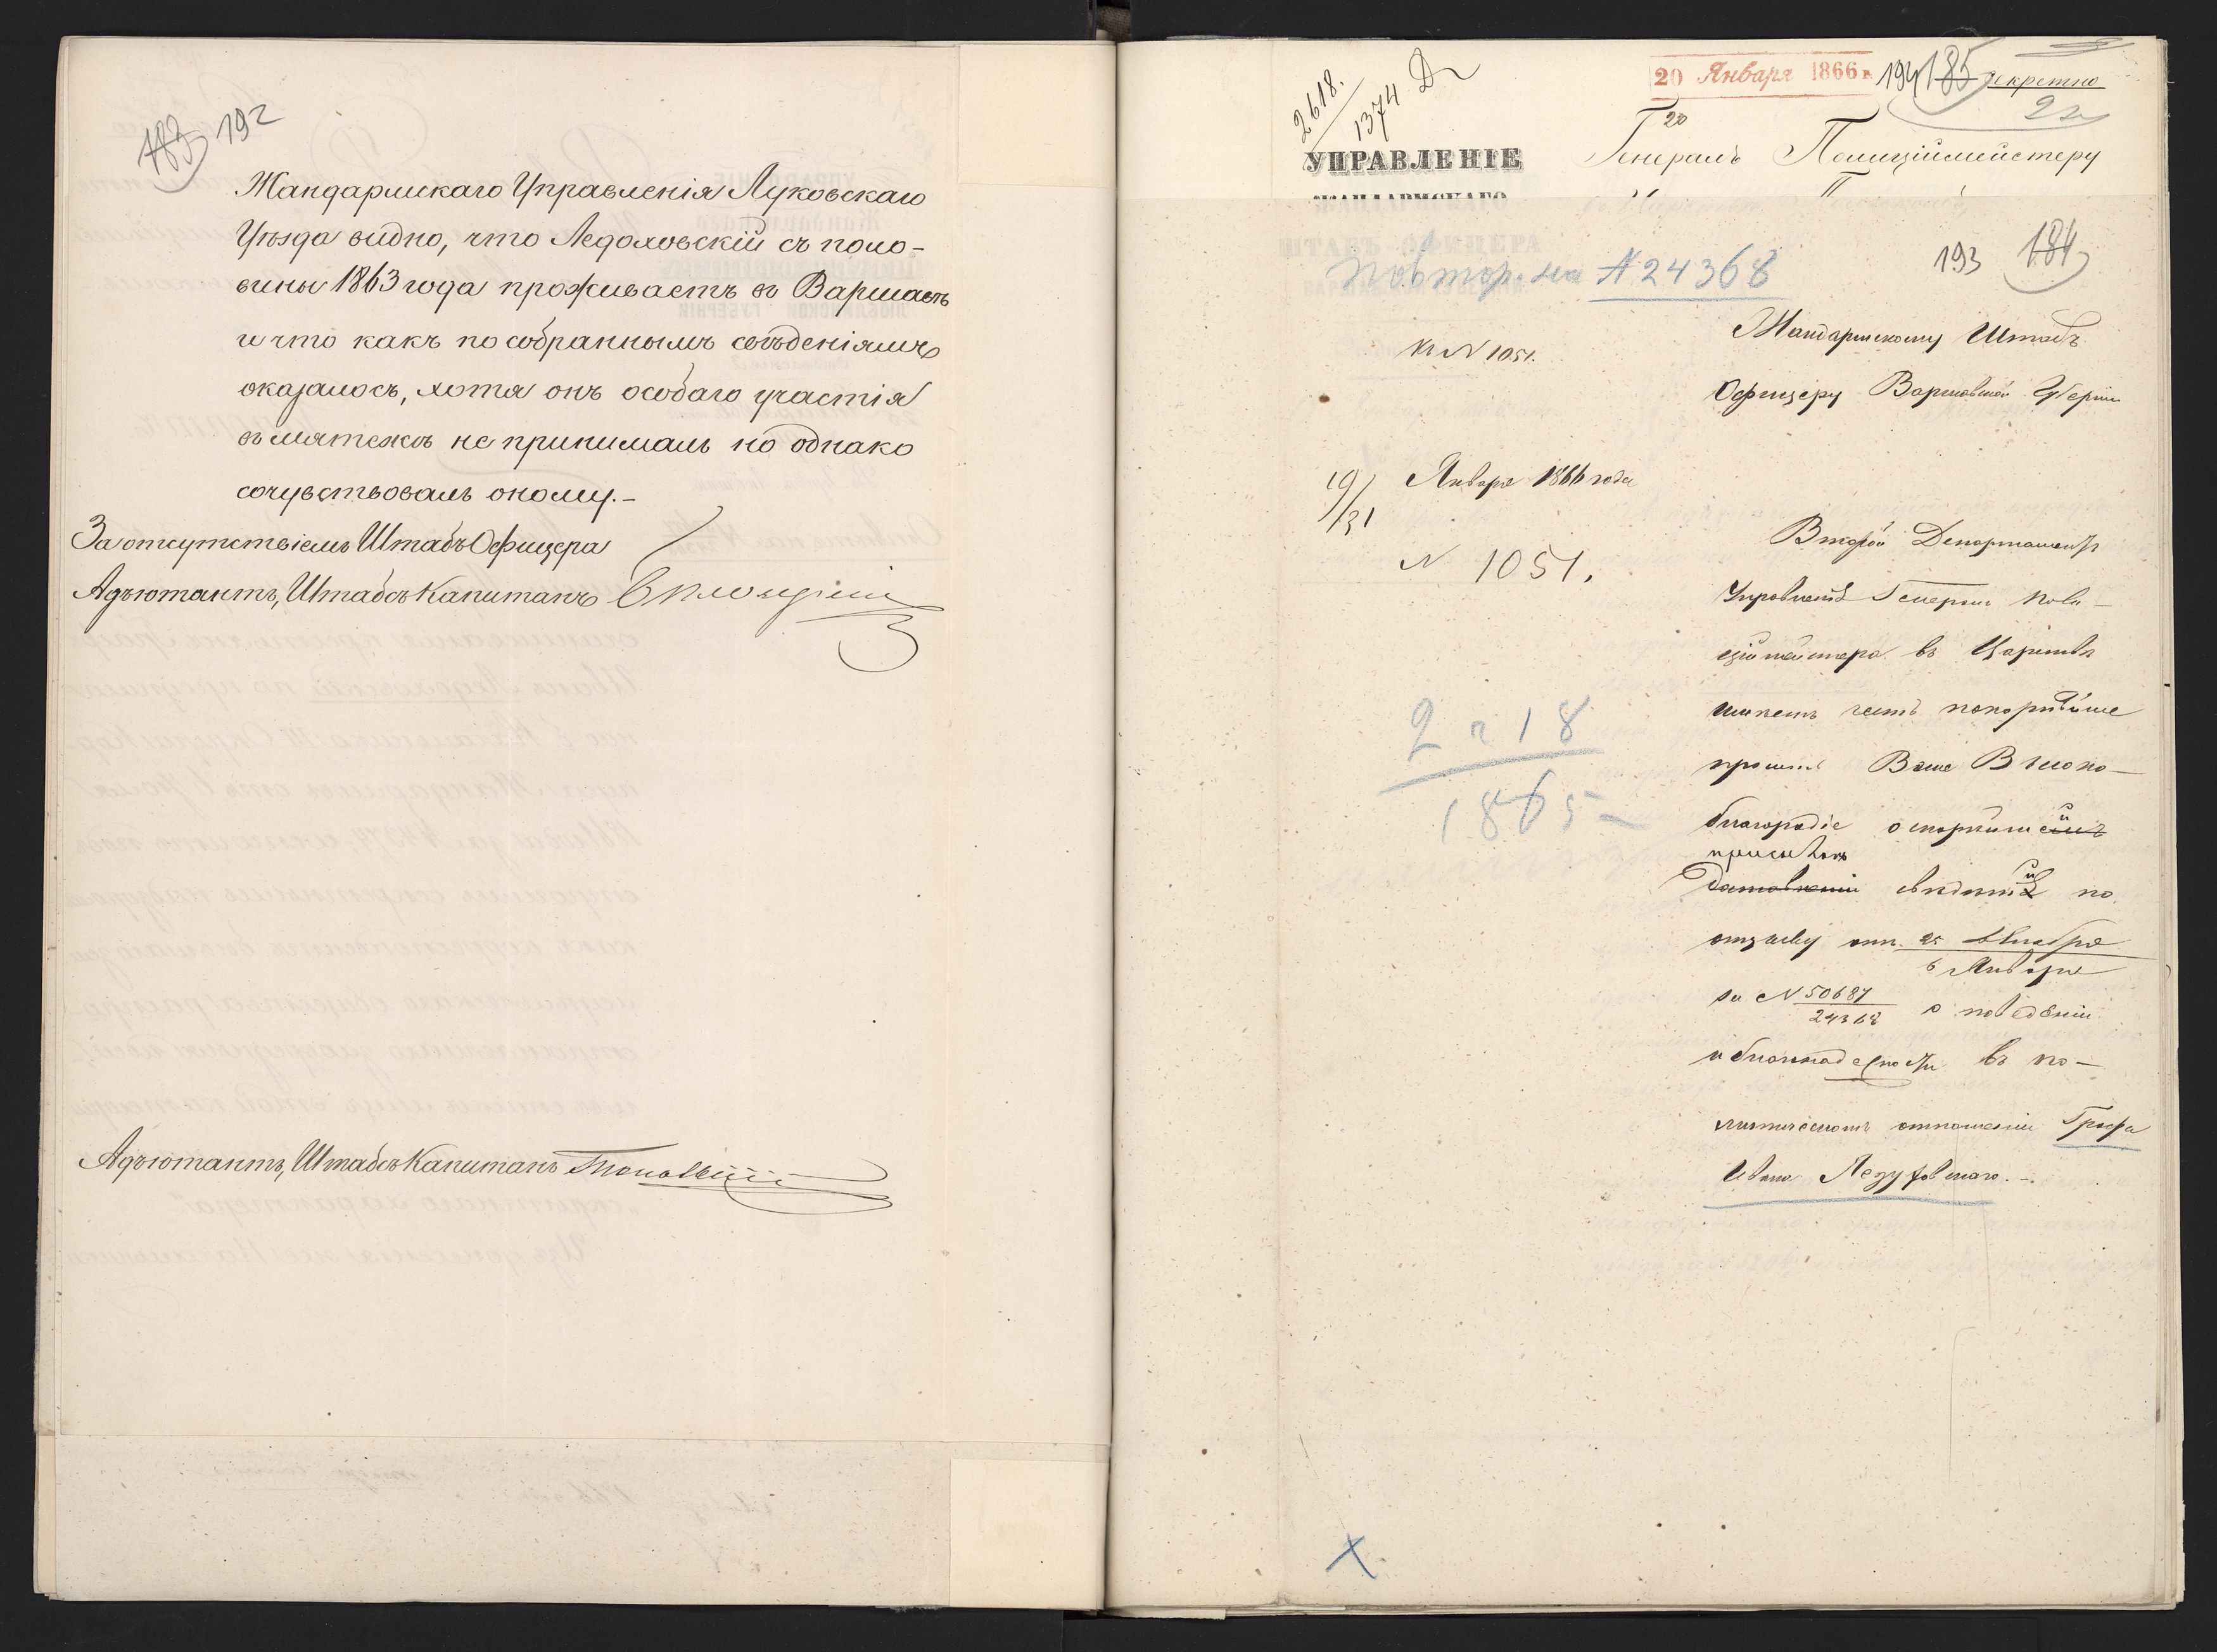 183 192
Жандармскаго Управленія Луковскаго
Уѣзда видно, что Ледоховскій съ поло-
вины 1863 года проживаетъ въ Варшавѣ
и что какъ по собраннымъ свѣденіямъ
оказалось, хотя онъ особаго участія
въ мятежѣ не принималъ но однако
сочувствовалъ оному.-
За отсутствіемъ Штабъ Офицера
Адъютантъ, Штабсъ Капитанъ
Адъютантъ, Штабсъ Капитанъ
2618.
1374
20 Января 1866 г.
194 185 Секретно
20
УПРАВЛЕНІЕ
Генералъ Полиціймейстеру
ЖАНДАРМСКАГО
Повтор. на № 24368
193 184
къ № 1051.
Жандармскому Штабъ
Офицеру Варшавской Губерніи
19/31 Января 1866 года
№ 1051.
Второй Департаментъ
Управленія Генералъ Поли-
ціймейстера въ Царствѣ
имѣетъ честь покорнѣйше
просить Ваше Высоко-
благородіе о скорѣйшей
присылкѣ
доставленіи свѣденій по
отзыву отъ 25 Декабря
6 Января
за № 50687
24368 о поведеніи
и благонадежности въ по-
литическомъ отношеніи Графа
Ивана Ледуховскаго.-
2 ч 18
1865